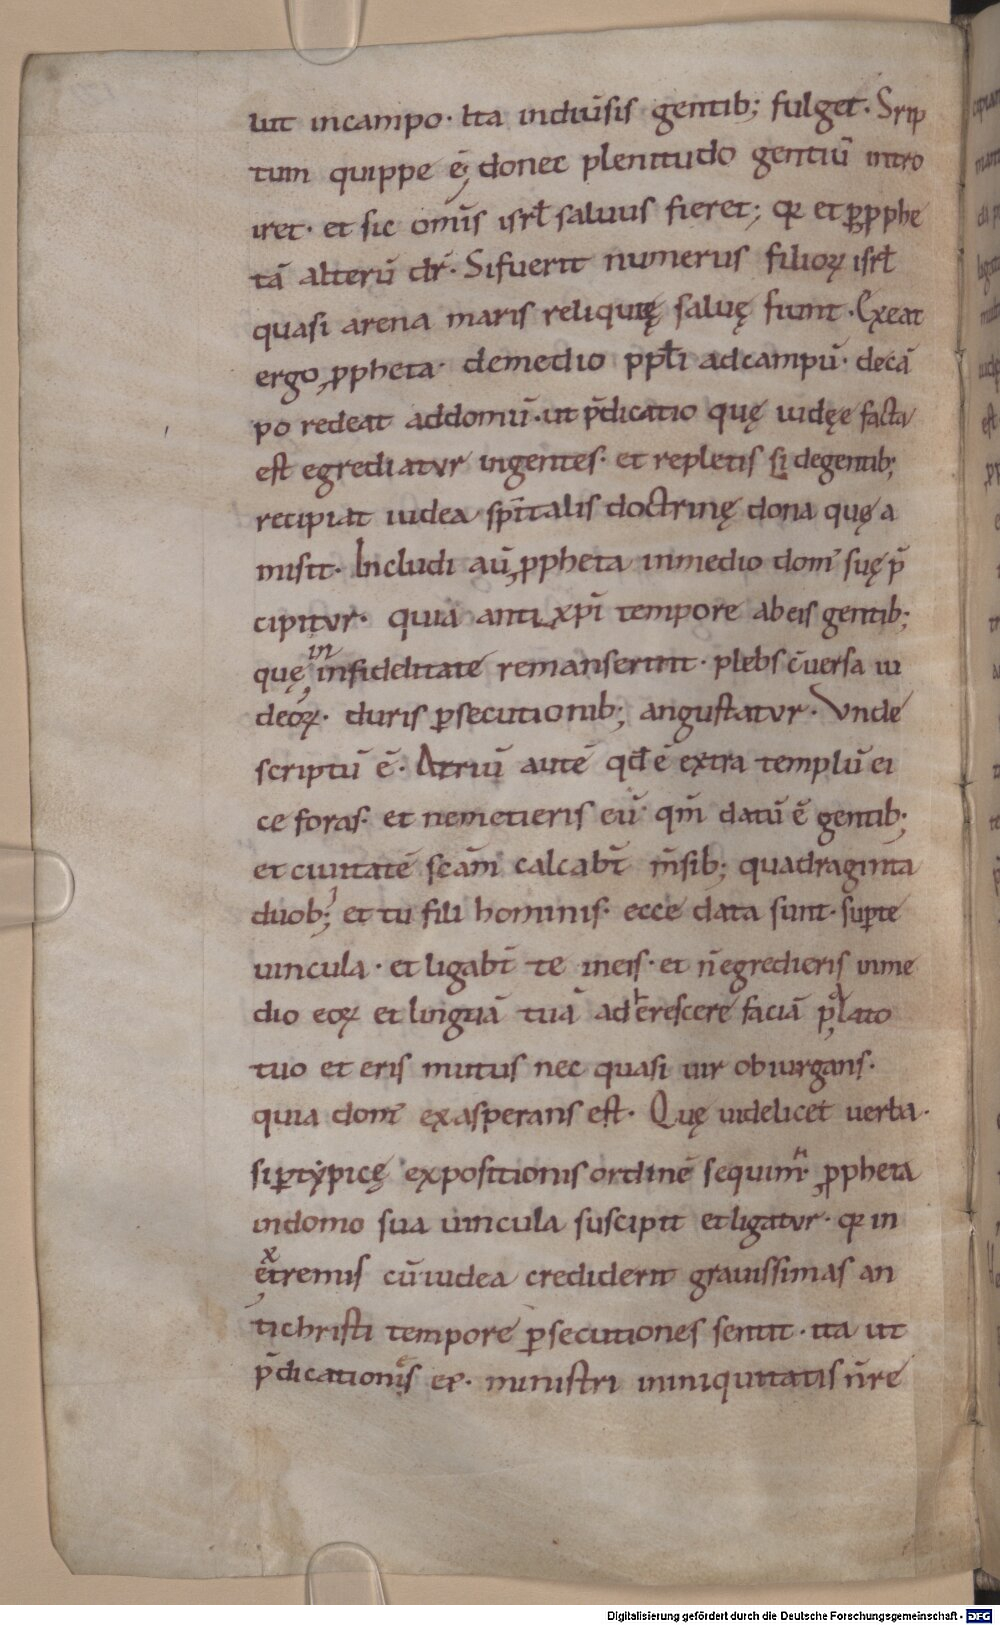 lut incampo· Ita indiũsis gentib; fulget· Srip
tum quippe ẽ; donec plenitudo gentiũ intro
iret· et sic om̃s isrł saluus fieret; qꝛ et ꝑꝓphe
tã alterũ dr̃· Sifuerit numerus filioꝝ isrł
quasi arena maris reliquię saluę fiunt· Exeat
ergo ꝓpheta· demedio ppłi adcampũ· decã
po redeat addomũ· ut p̃dicatio quę iudęe facta
est egrediatur ingentes· et repletis sṇ degentib;
recipiat iudea spĩtalis doctrinę dona quę a
misit· Includi aũ ꝓpheta inmedio dom̃ suę p̃
cipitur· quia anti xpĩ tempore abeis gentib;
quę in infidelitate remanserint· plebs c̃uersa iu
deoꝝ· duris ꝑsecutionib; angustatur· Vnde
scriptũ ẽ· Atriũ autẽ qđ ẽ extra templũ ei
ce foras· et nemetieris eũ· qm̃ datũ ẽ gentib;
et ciuitatẽ scãm calcabt̃ m̃sib; quadraginta
duob; et tu fili hominis· ecce data sunt· suꝑte
uincula· et ligabt̃ te ineis· et ñegredieris inme
dio eoꝝ et linguã tuã adherescere faciã palato
tuo et eris mutus nec quasi uir obiurgans·
quia dom̃ exasperans est· Quę uidelicet uerba·
siꝑtẏpicę expositionis ordinẽ sequim̃r· ꝓpheta
indomo sua uincula suscipit et ligatur· qꝛ in
extremis cũ iudea crediderit grauissimas an
tichristi tempore ꝑsecutiones sentit· ita ut
p̃dicationẽis ei'· ministri ininiquitatis ñre
Digitalisierung gefördert durch die Deutsche Forschungsgemeinschaft - DFG